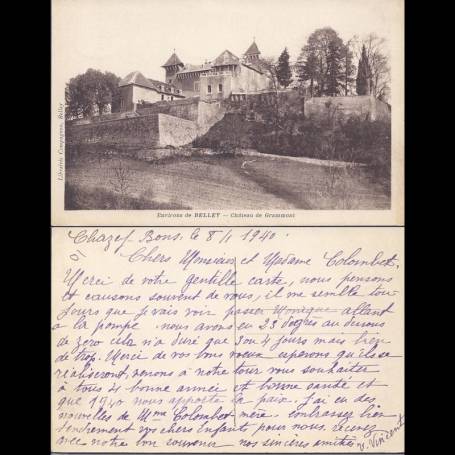 Librairie Compagnon, Belley
Environs de BELLEY — Château de Grammont
Chazey-Bons. le 8/1 1940.
Chers Monsieur et Madame Colombet,
Merci de votre gentille carte, nous pensons
et causons souvent de vous, il me semble tou-
jours que je vais voir passer Monique allant
à la pompe. nous avons eu 23 degrès au dessous
de zéro cela n'a duré que 3 ou 4 jours mais bien
de trop. Merci de vos bons voeux esperons qu'ils se
réaliseront, venons à notre tour vous souhaiter
à tous 4 bonne année et bonne santé et
que 1940 nous apporte la paix. J'ai eu des
nouvelles de Mme Colombet mère. embrassez bien
tendrement vos chers Enfants pour nous. recevez
avec notre bon souvenir nos sincères amitiés
V. Vincent